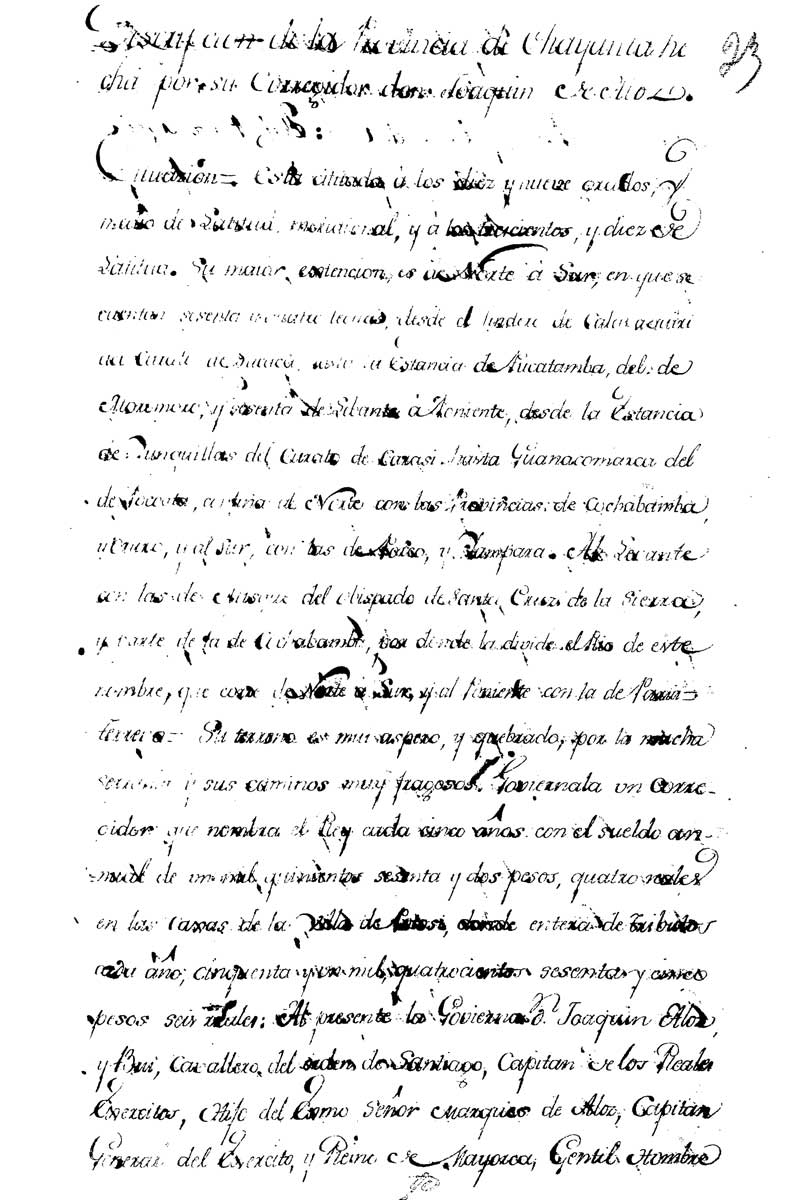 Descripcion de la Provincia de Chayanta he
cha por su Corregidor don Joaquin de Aloz.
23
Cituazion= Està cituada à los diez y nueve grados, y
medio de Latitud, meridional, y à los trescientos, y diez de
Latitud. Su maior, estencion, es de Norte à Sur, en que se
cuentan sesenta y quatro leguas, desde el lindero de
del Curato de hasta la Estancia de Aucatamba, del de
Moromoro; y sesenta de Libante à Poniente, desde la Estancia
de Punquillas del Curato de Carasi hasta Guanacomarca del
de Pocoata, confina al Norte con las Provincias de Cochabamba,
y Oruro, y al Sur, con las de y Yampara. Al Levante
con las de Misque del obispado de Santa Cruz de la Sierra,
y parte de la de Cochabamba, por donde la divide el Rio de este
nombre, que corre de Norte à Sur, y al Poniente con la de Paria=
terreno= Su terreno es mui aspero, y quebrado, por la mucha
serrania y sus caminos muy fragosos. Goviernala un Corre-
gidor que nombra el Rey cada cinco años con el sueldo an-
nual de un mil, quinientos sesenta y dos pesos, quatro reales
en las Caxas de la Villa de Potosi, donde entera de tributos
cada año, cinquenta y un mil, quatrocientos sesenta y cinco
pesos seis reales: Al presente la Govierna Dn Joaquin Aloz,
y Bru, Cavallero del orden de Santiago, Capitan de los Reales
Exercitos, Hijo del Exmo Señor Marques de Aloz, Capitan
General del Exercito, y Reino de Mayorca, Gentil Hombre